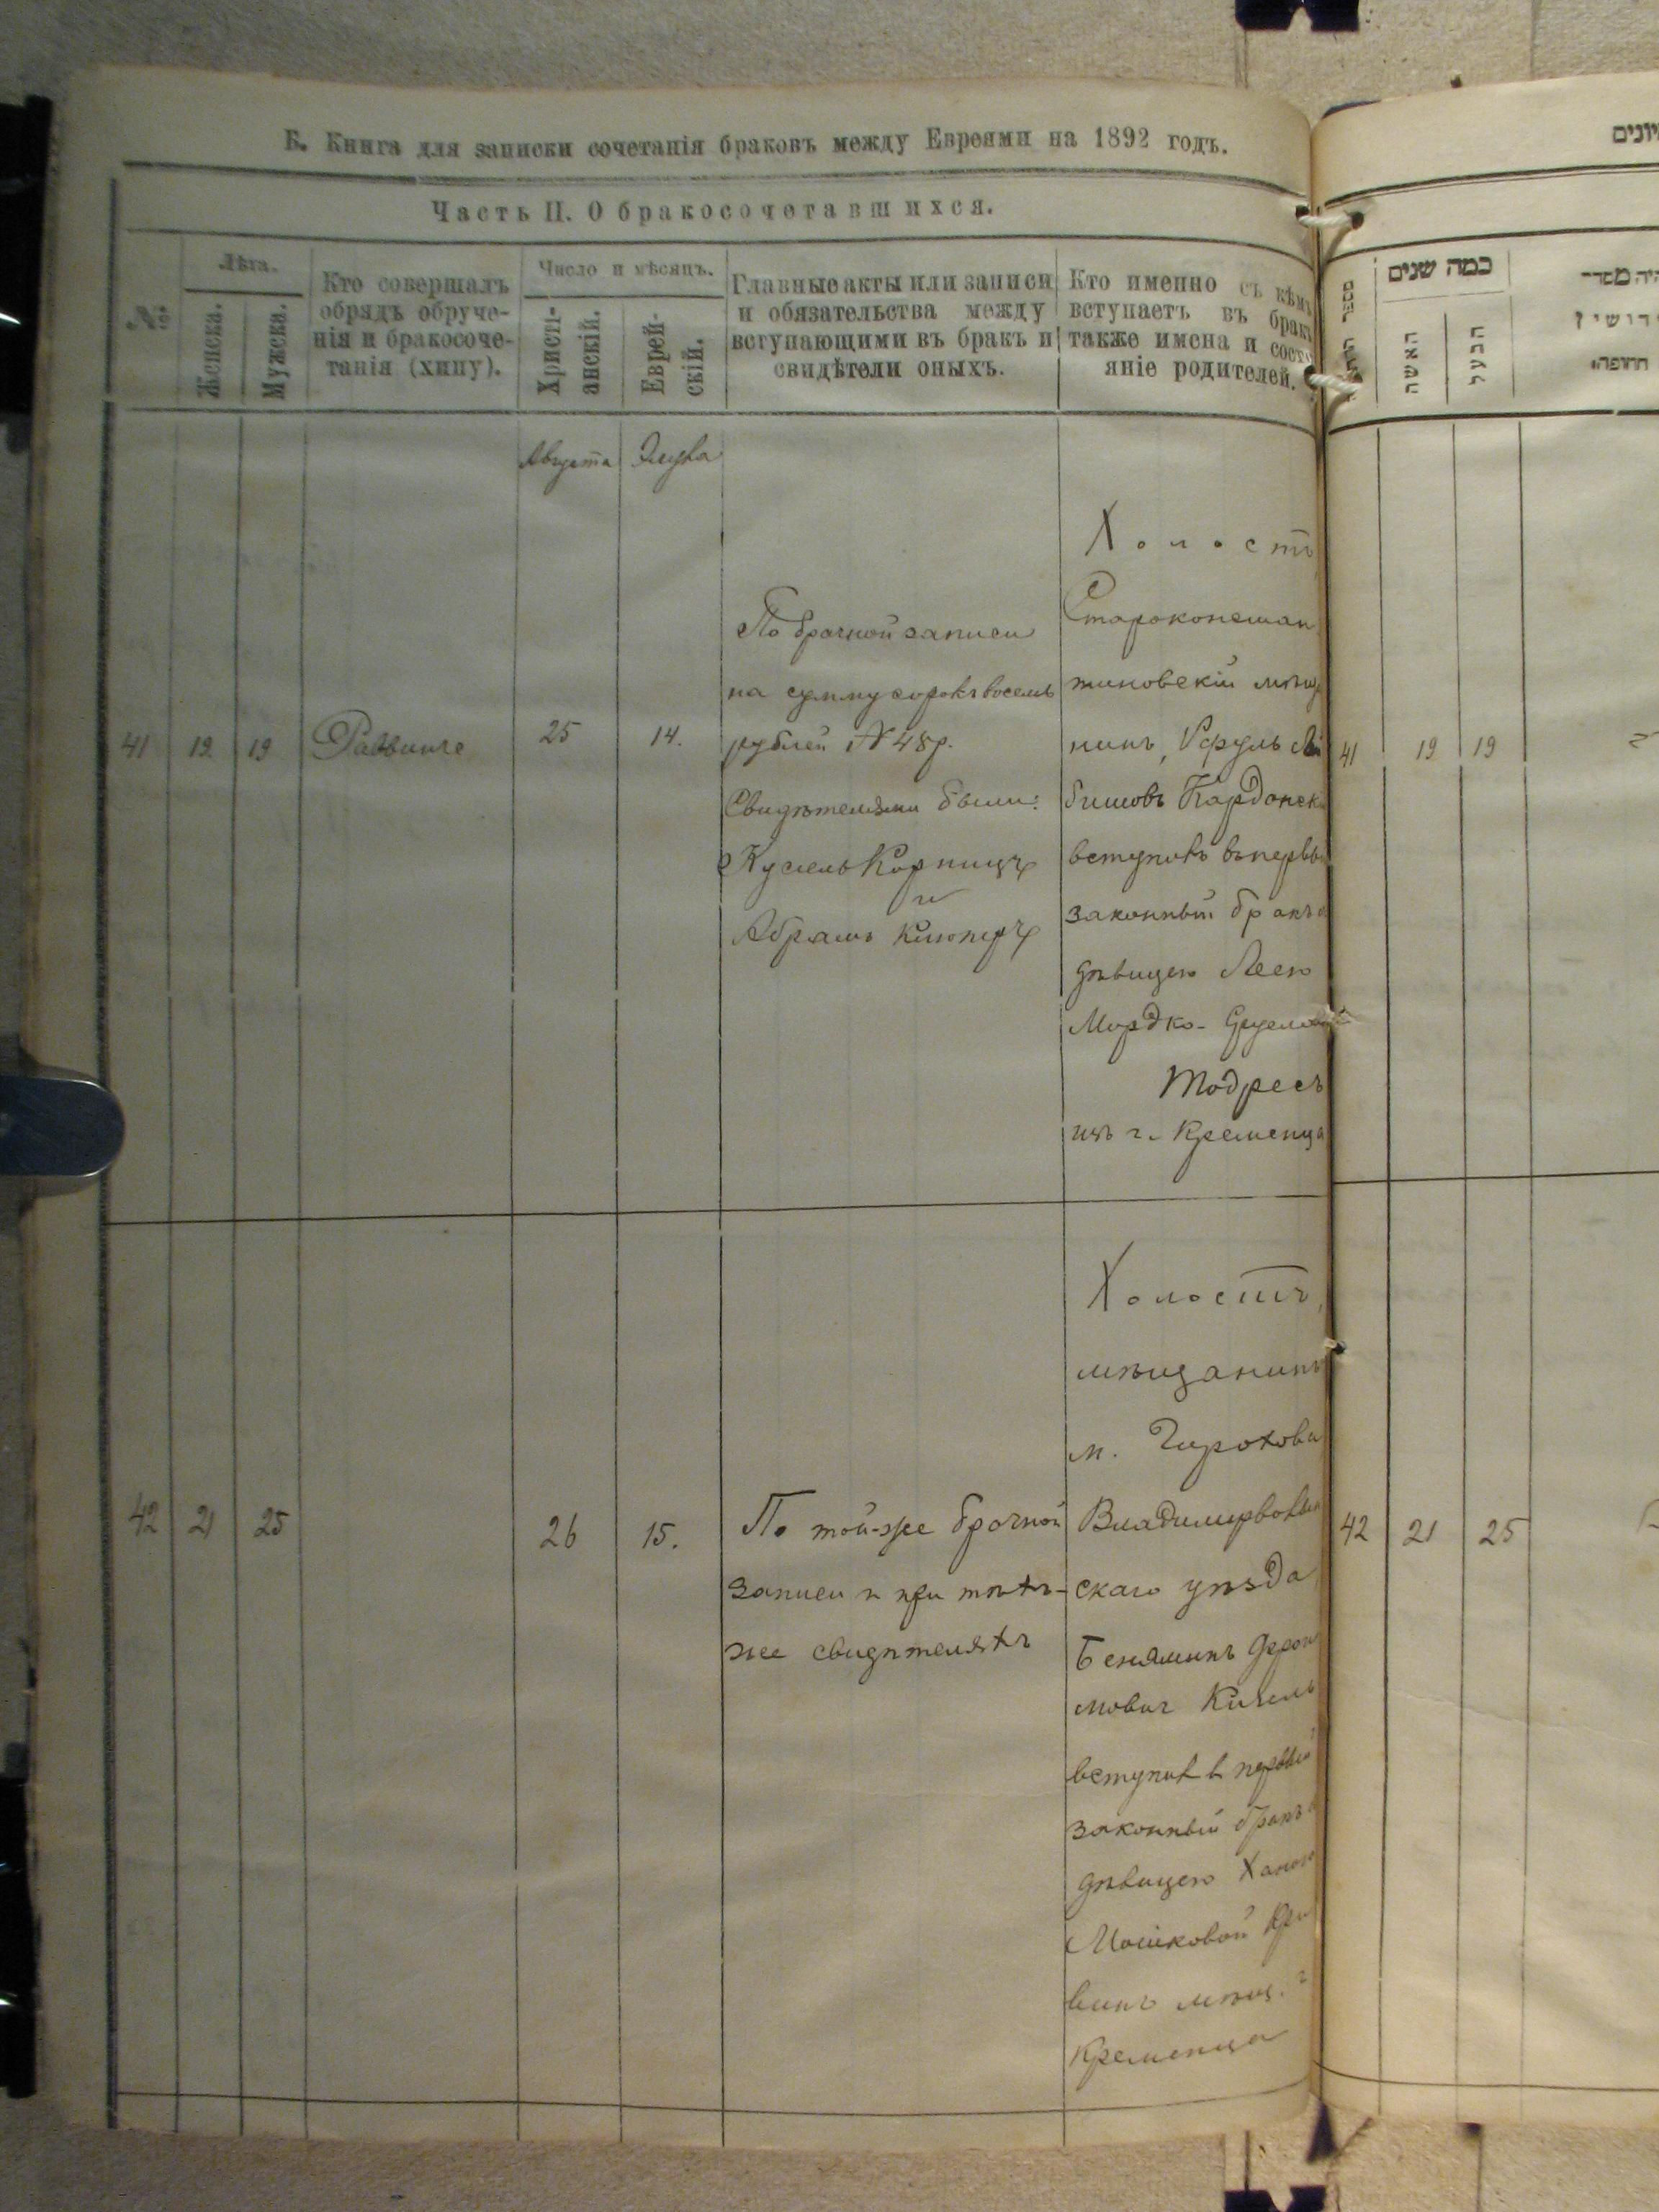 Б. Книга для записки сочетанія браковъ между Евреями на 1892 годъ.
Часть II. О бракосочетавшихся.
№
Лѣта.
Женска.
Мужска.
Кто совершалъ
обрядъ обруче-
нія и бракосоче-
танія (хипу).
Число и мѣсяцъ.
Христі-
анскій.
Еврей-
скій.
Главные акты или записи
и обязательства между
вступающими въ бракъ и
свидѣтели оныхъ.
Кто именно съ кѣмъ
вступаетъ въ бракъ
также имена и состо-
яніе родителей.
Августа
Элула
41
19
19
Раввинъ
25
14.
По брачной записи
на сумму сорокъ восемь
рублей № 48 р.
Свидѣтелями были:
Кусіель
и
Абрамъ
Холостъ
Староконстан
тиновскій мѣщ
нинъ,
вступилъ въ первый
законный бракъ
дѣвицею Леею
Мордко- Сруелов
Тодресъ
изъ г. Кременца
42
21
25
26
15.
По той-же брачной
записи и при тѣхъ-
же свидѣтеляхъ
Холостъ,
мѣщанинъ
м.
Владимірволын
скаго уѣзда
Беняминъ
мович Кизель
вступил в первый
законный бракъ
дѣвицею Ханою
Мошковой Кри
винъ мѣщ. г
Кременца
כמה שנים
האשה
הבעל
41
19
19
42
21
25